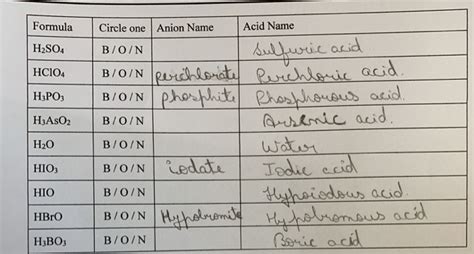 Formula Circle one Anion Name Acid Name
H₂SO₄ B / O / N Sulfuric acid
HClO₄ B / O / N perchlorate Perchloric acid.
H₃PO₃ B / O / N phosphite Phosphorous acid.
H₃AsO₂ B / O / N Arsenic acid.
H₂O B / O / N Water
HIO₃ B / O / N iodate Iodic acid
HIO B / O / N Hypoiodous acid.
HBrO B / O / N Hypobromite Hypobromous acid
H₃BO₃ B / O / N Boric acid